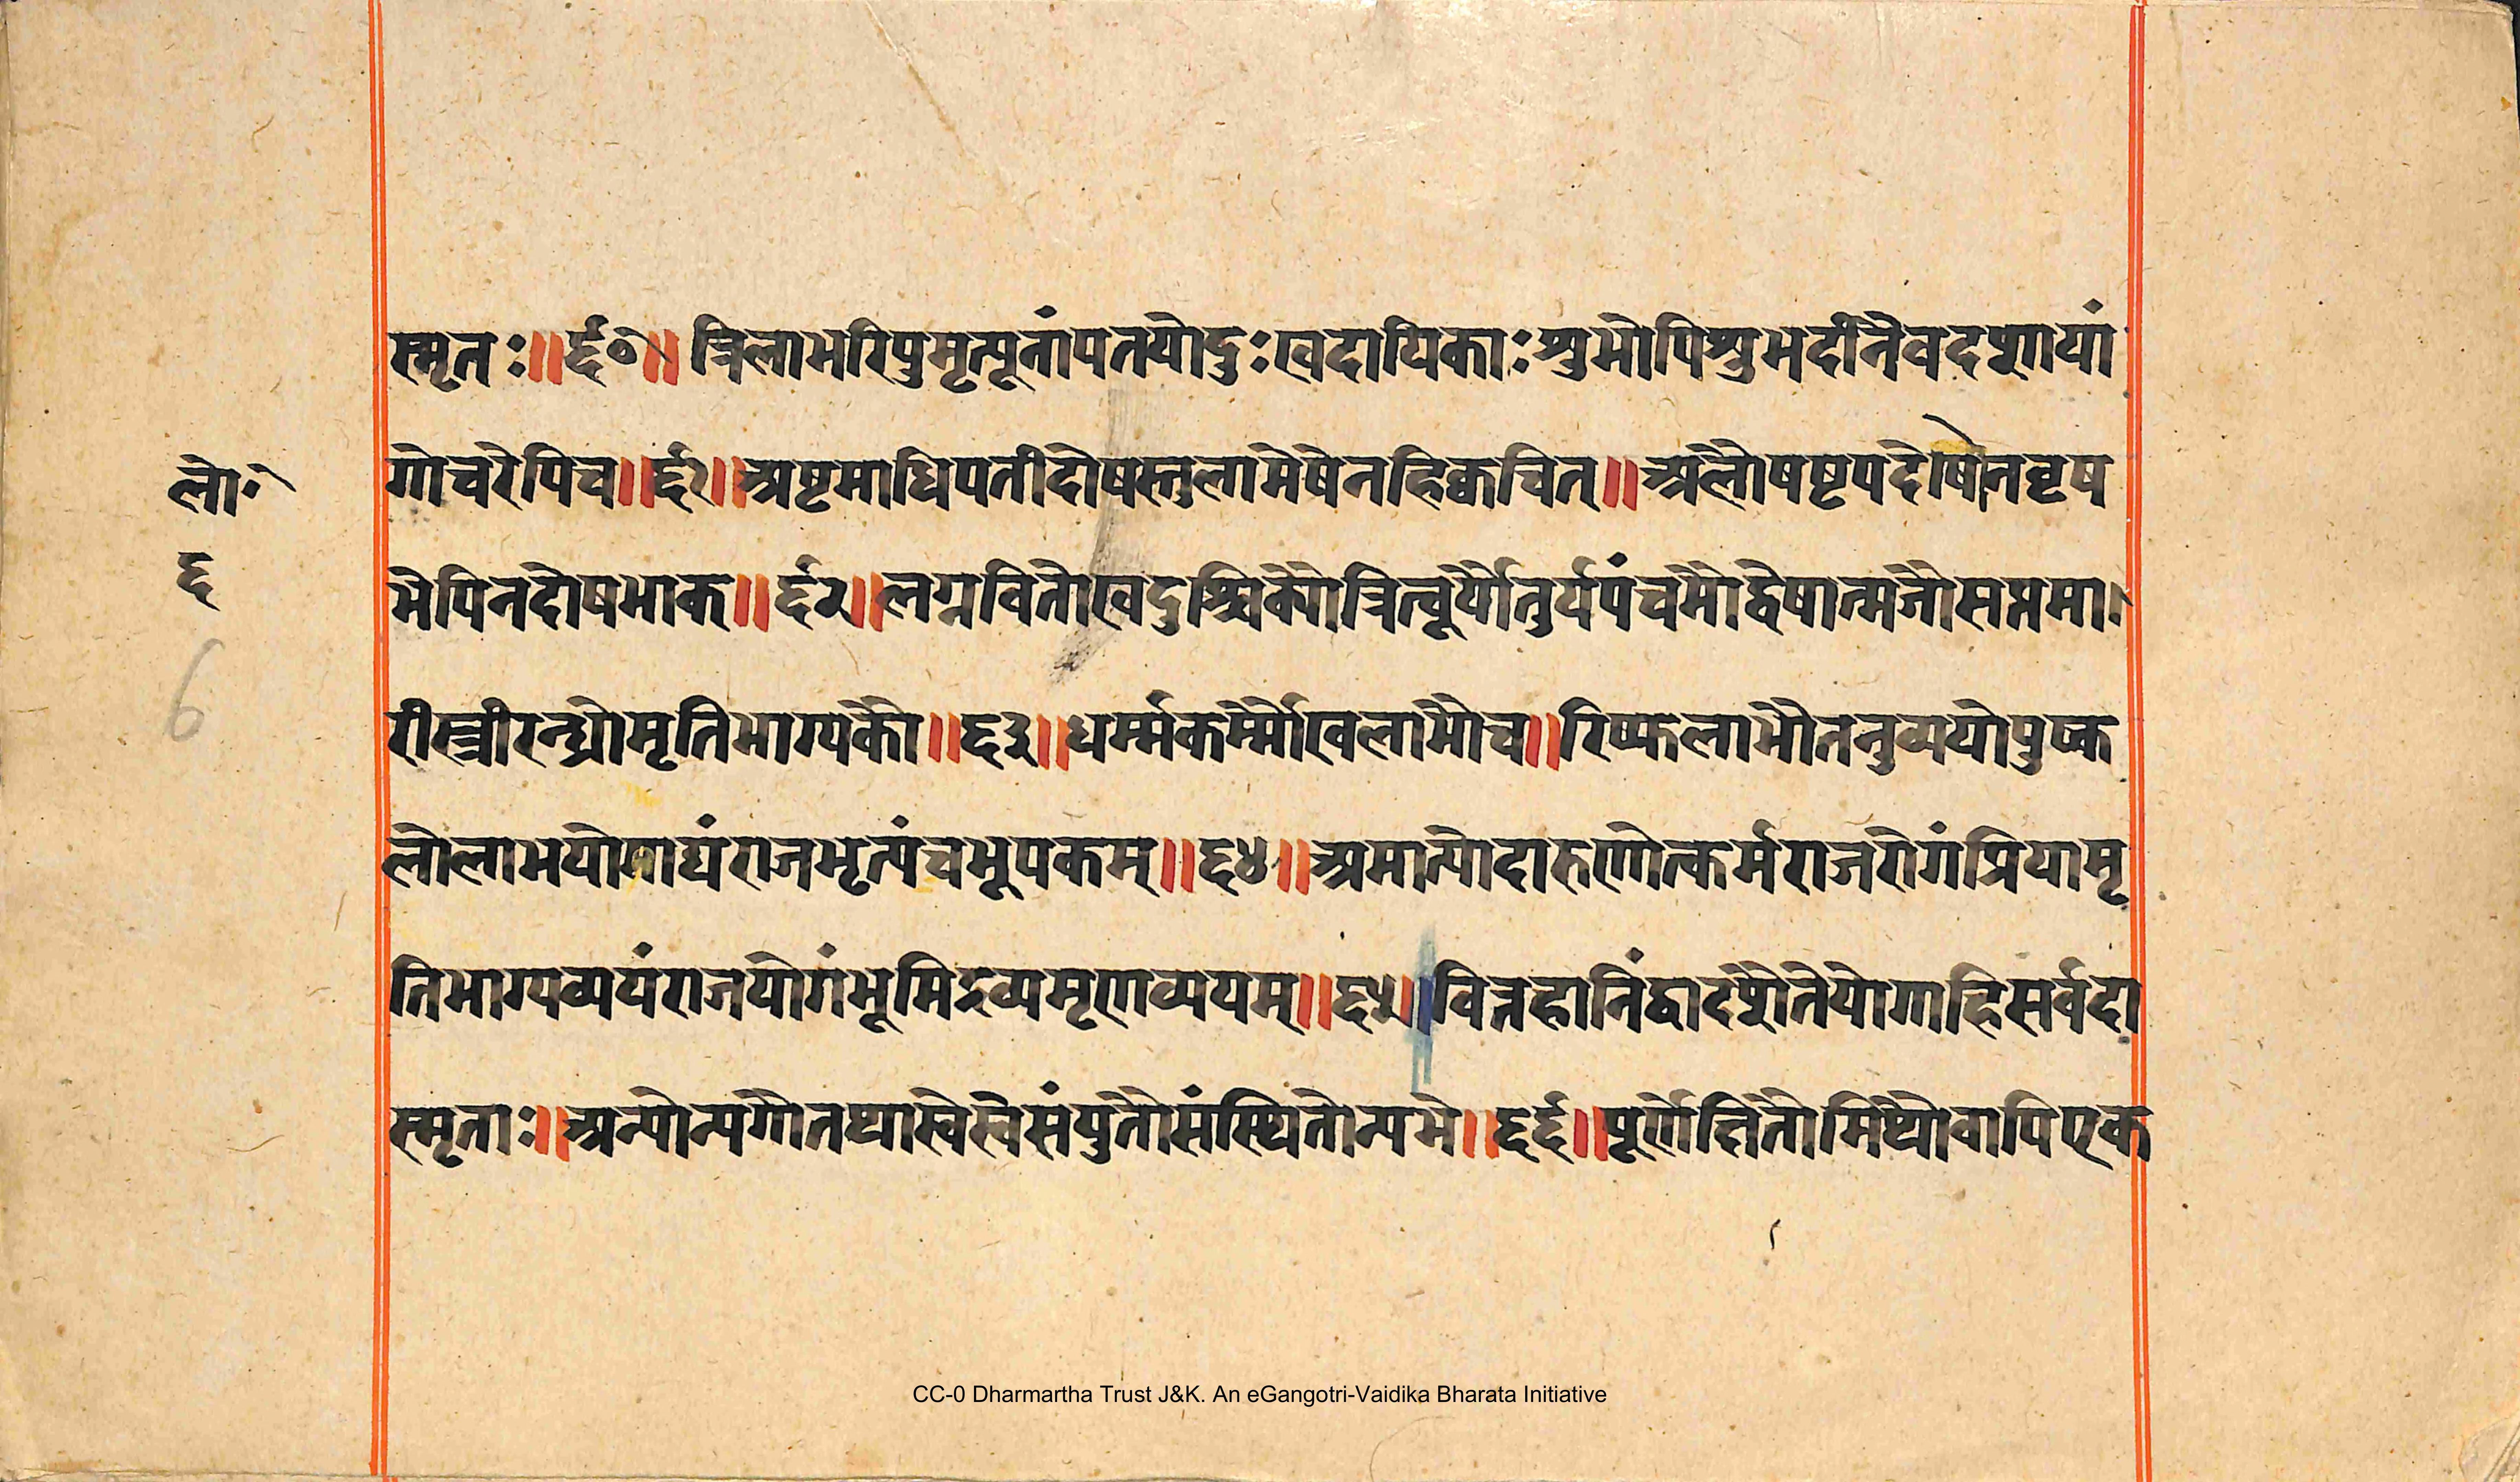 स्मृतः॥६०॥त्रिलाभरिपुमृत्यूनांपतयोदुःखदायिकाः शुभोपिशुभदोनैवदशायां
गोचरेपिच॥६१॥अष्टमाधिपतीदोषस्तुलामेषेनहिक्वचित्॥अलौषष्टपदोषोनवृष
भेपिनदोषभाक्॥६२॥लग्नवितौखदुश्चिक्यौत्रित्वूर्यौतुर्यपंचमौद्वेषात्मजौसप्तमा
रीस्त्रीरन्ध्रोमृतिभाग्यकौ॥६३॥धर्म्मकर्म्मौखलाभौच॥रिष्फलाभौतनुव्ययोपुष्क
लोलाभयोगाद्यंराजभृत्यंचभूपकम्॥६४॥अमात्योदारुणोत्कर्मराजरोगंप्रियामृ
तिभाग्यव्ययंराजयोगंभूमिद्रव्यमृणव्ययम्॥६५॥वित्तहानिंद्वादशैतेयोगाहिसर्वदा
स्मृताः॥अन्योन्यगौतष्यास्वेस्वेसंयुतौसंस्थितोन्यभे॥६६॥पूर्णेक्षितौमिथौवापिएक
लो॰
६
6
CC-0 Dharmartha Trust J&K. An eGangotri-Vaidika Bharata Initiative